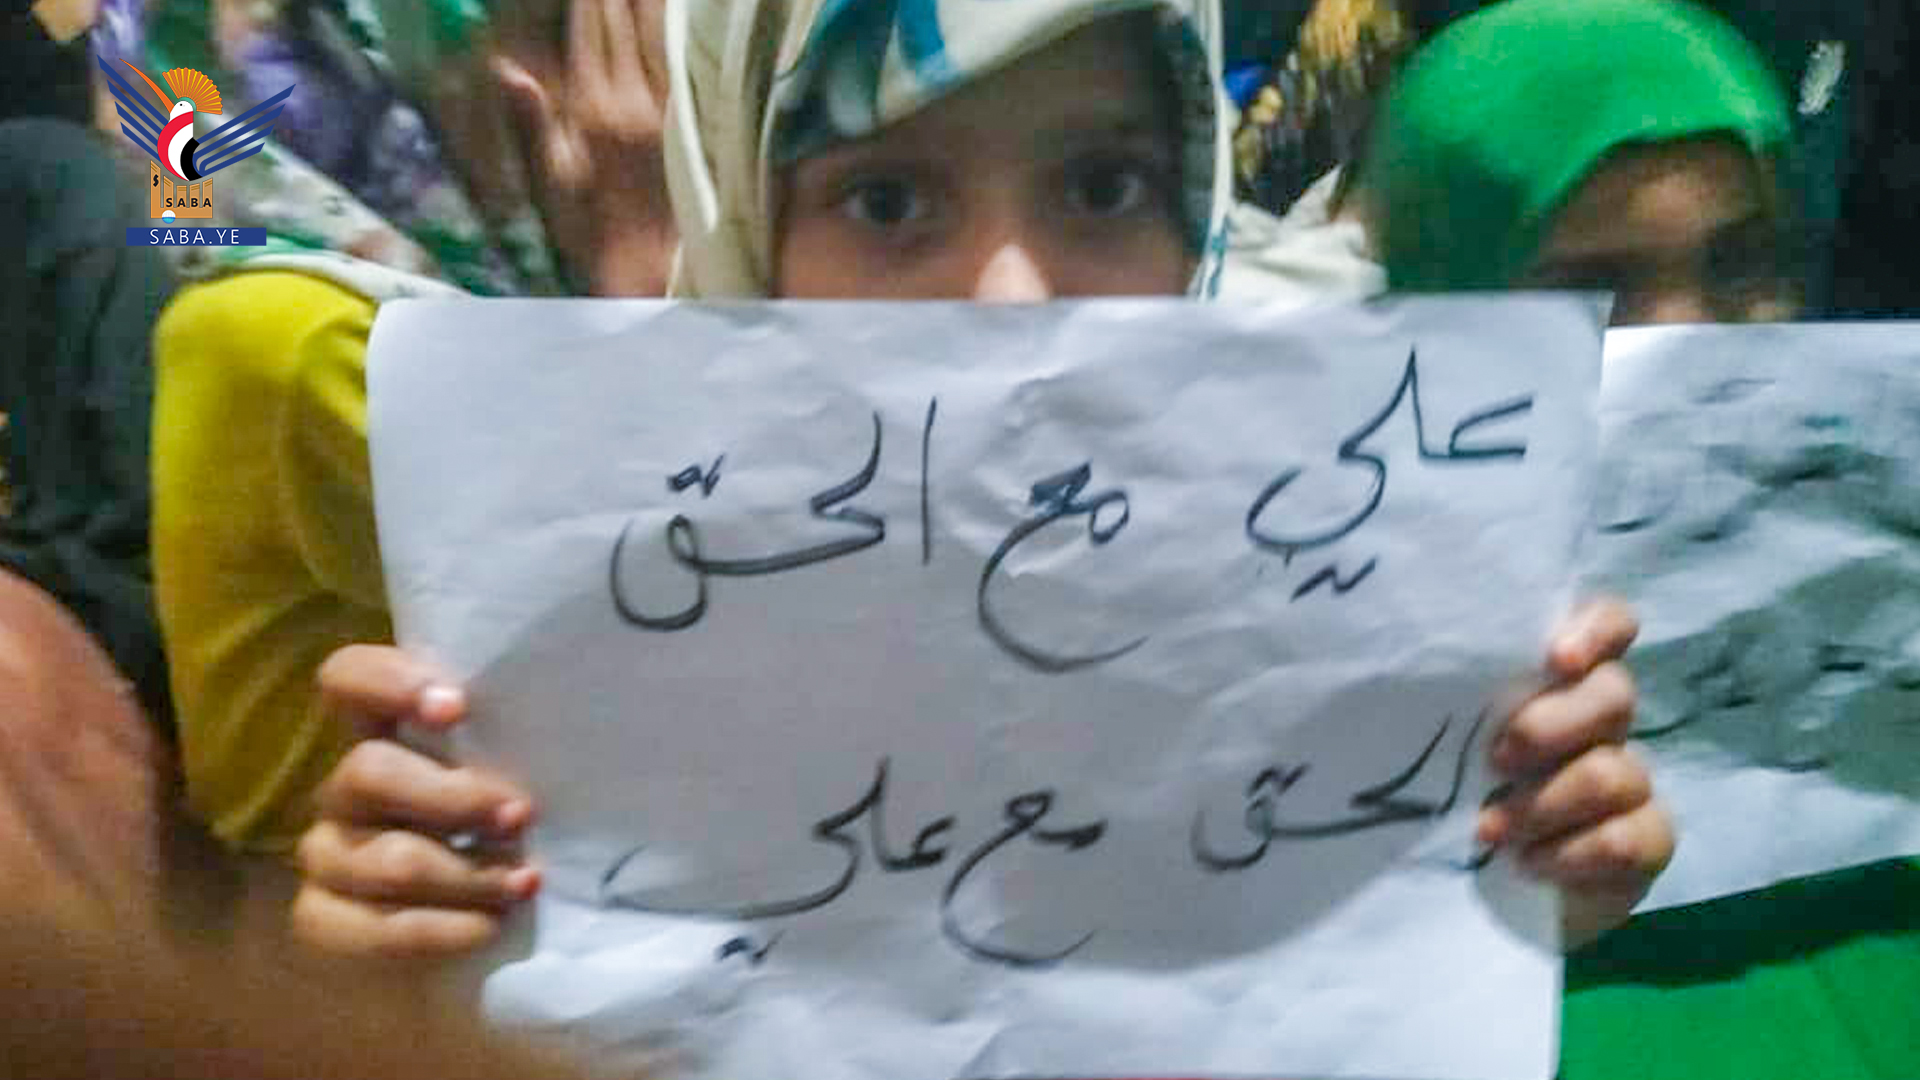 SABA
SABA.YE
علي مع الحق
والحق مع علي